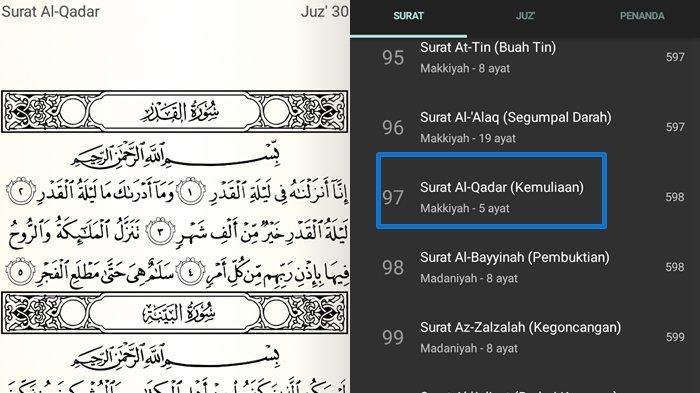 Surat Al-Qadar
Juz' 30
سُورَةُ الْقَدْرِ
بِسْمِ اللَّهِ الرَّحْمَٰنِ الرَّحِيمِ
إِنَّا أَنزَلْنَٰهُ فِى لَيْلَةِ الْقَدْرِ ١ وَمَا أَدْرَىٰكَ مَا لَيْلَةُ الْقَدْرِ ٢
لَيْلَةُ الْقَدْرِ خَيْرٌ مِّنْ أَلْفِ شَهْرٍ ٣ تَنَزَّلُ الْمَلَٰٓئِكَةُ وَالرُّوحُ
فِيهَا بِإِذْنِ رَبِّهِم مِّن كُلِّ أَمْرٍ ٤ سَلَٰمٌ هِىَ حَتَّىٰ مَطْلَعِ الْفَجْرِ ٥
سُورَةُ الْبَيِّنَةِ
بِسْمِ اللَّهِ الرَّحْمَٰنِ الرَّحِيمِ
SURAT
JUZ'
PENANDA
95
Surat At-Tin (Buah Tin)
Makkiyah - 8 ayat
597
96
Surat Al-'Alaq (Segumpal Darah)
Makkiyah - 19 ayat
597
97
Surat Al-Qadar (Kemuliaan)
Makkiyah - 5 ayat
598
98
Surat Al-Bayyinah (Pembuktian)
Madaniyah - 8 ayat
598
99
Surat Az-Zalzalah (Kegoncangan)
Madaniyah - 8 ayat
599